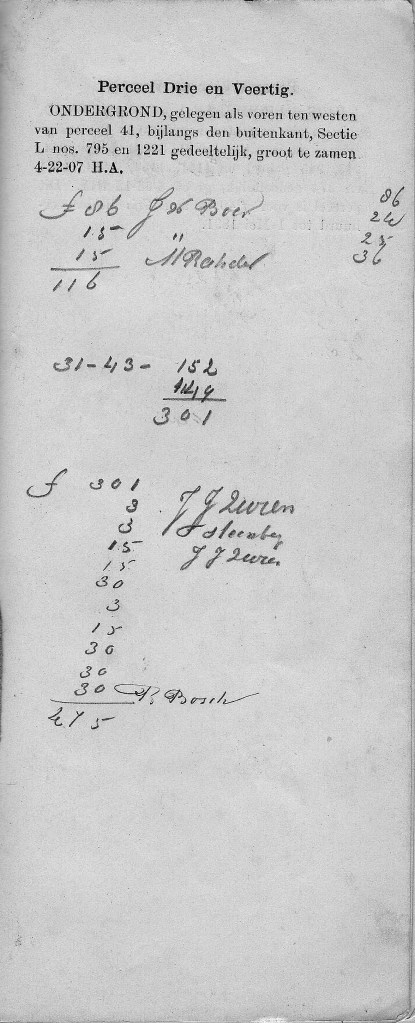 Perceel Drie en Veertig.
ONDERGROND, gelegen als voren ten westen
van perceel 41, bijlangs den buitenkant, Sectie
L nos. 795 en 1221 gedeeltelijk, groot te zamen
4-22-07 H.A.
f 86 J H Boer 86
15 " 24
15 25
116 36
31-43- 152
149
301
f 301
3 J J
3
15 J J
15
30
3
15
30
30
30 Bosch
475